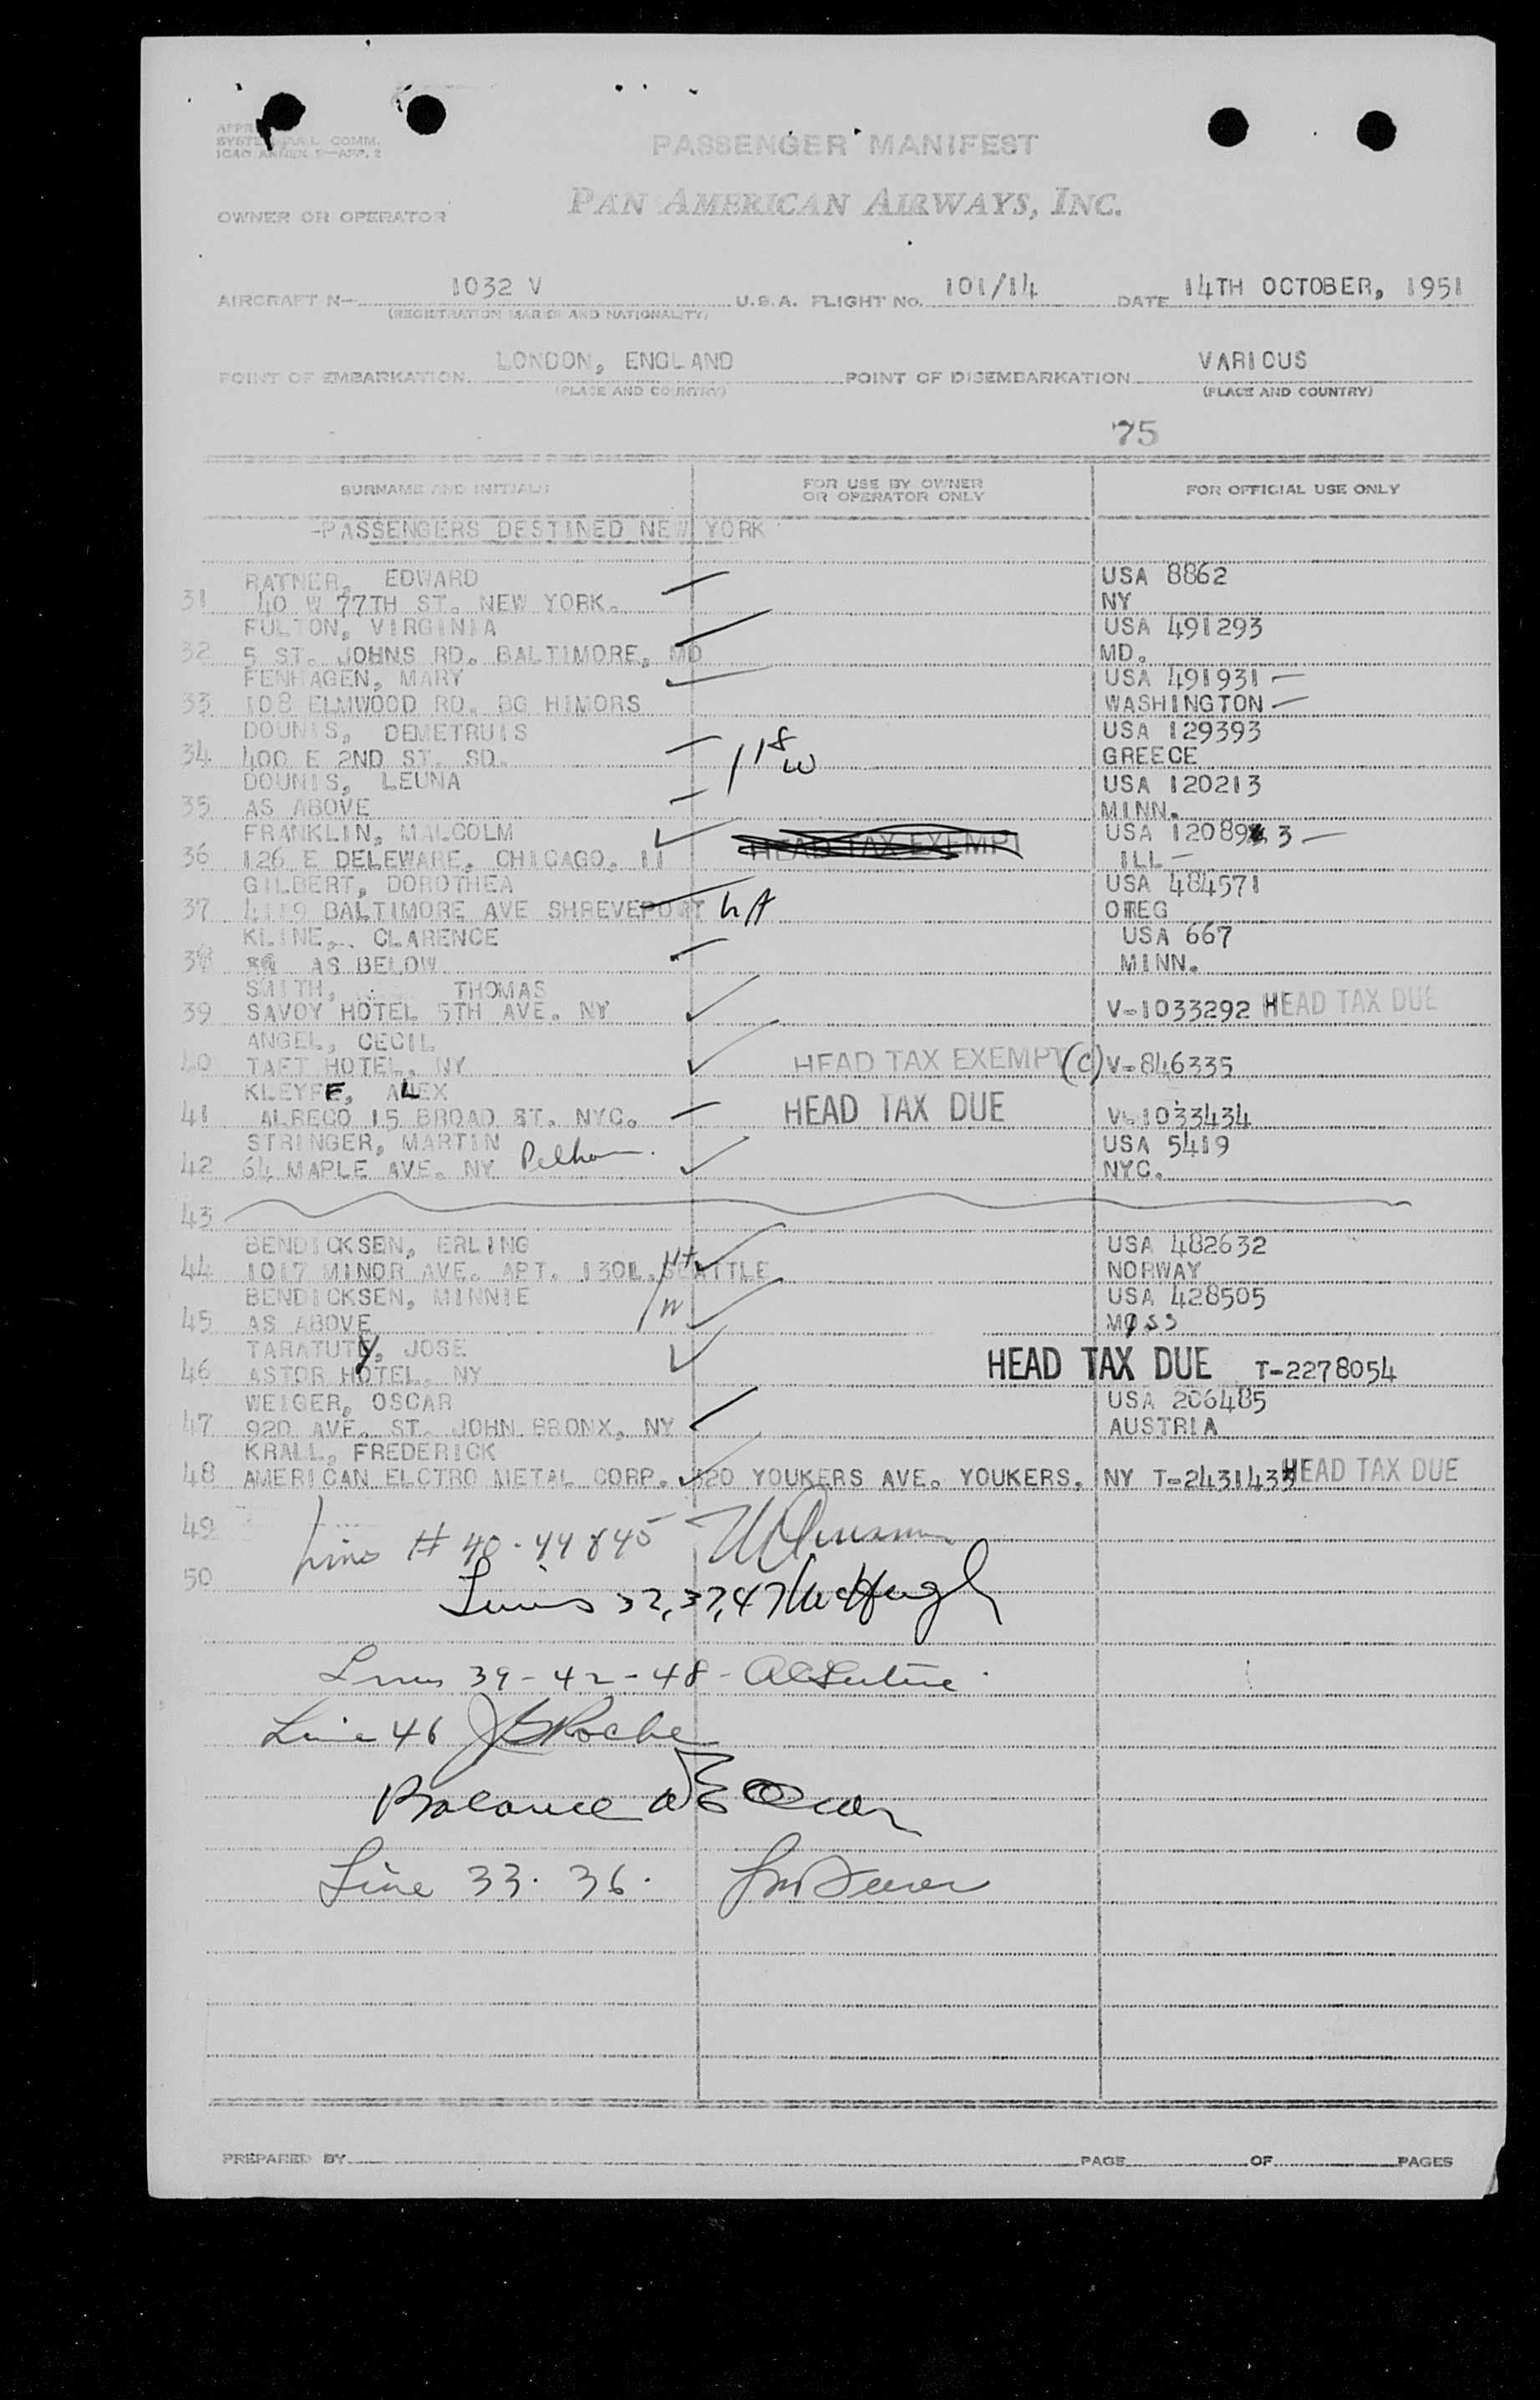 PASSENGER MANIFEST
SYSTE COMM.
ICAO ANNEX 9—APP. 2
PAN AMERICAN AIRWAYS, INC.
OWNER OR OPERATOR
AIRCRAFT N— 1032 V U.S.A. FLIGHT No. 101/14 DATE 14TH OCTOBER, 1951
(REGISTRATION MARKS AND NATIONALITY)
POINT OF EMBARKATION LONDON, ENGLAND POINT OF DISEMBARKATION VARIOUS
(PLACE AND COUNTRY) (PLACE AND COUNTRY)
75
SURNAME AND INITIALS FOR USE BY OWNER OR OPERATOR ONLY FOR OFFICIAL USE ONLY
-PASSENGERS DESTINED NEW YORK
RATNER, EDWARD USA 8862
31 40 W 77TH ST. NEW YORK. NY
FULTON, VIRGINIA USA 491293
32 5 ST. JOHNS RD. BALTIMORE, MD MD.
FENHAGEN, MARY USA 491931
33 108 ELMWOOD RD. BG HIMORS WASHINGTON
DOUNIS, DEMETRUIS USA 129393
34 400 E 2ND ST. SD. GREECE
DOUNIS, LEUNA USA 120213
35 AS ABOVE MINN.
FRANKLIN, MALCOLM HEAD TAX EXEMPT USA 12089 3
36 126 E DELEWARE, CHICAGO, 11 ILL
GILBERT, DOROTHEA USA 484571
37 4119 BALTIMORE AVE SHREVEPORT LA OREG
KLINE, CLARENCE USA 667
38 AS BELOW MINN.
SMITH, THOMAS
39 SAVOY HOTEL 5TH AVE. NY V-1033292 HEAD TAX DUE
ANGEL, CECIL
40 TAFT HOTEL, NY HEAD TAX EXEMPT (C) V-846335
KLEYFF, ALEX
41 ALBECO 15 BROAD ST. NYC. HEAD TAX DUE V-1033434
STRINGER, MARTIN USA 5419
42 64 MAPLE AVE. NY Pelham. NYC.
43
BENDICKSEN, ERLING USA 482632
44 1017 MINOR AVE. APT. 1301. SEATTLE NORWAY
BENDICKSEN, MINNIE USA 428505
45 AS ABOVE
TARATUTY, JOSE
46 ASTOR HOTEL, NY HEAD TAX DUE T-2278054
WEIGER, OSCAR USA 206485
47 920 AVE. ST. JOHN BRONX, NY AUSTRIA
KRALL, FREDERICK
48 AMERICAN ELCTRO METAL CORP. 320 YOUKERS AVE. YOUKERS, NY T-2431433 HEAD TAX DUE
49 Lines # 40-44 & 45
50
Lines 32, 37, 47 McHugh
Lines 39-42-48-
Line 46 Roche
Balance
Line 33. 36.
PREPARED BY PAGE OF PAGES